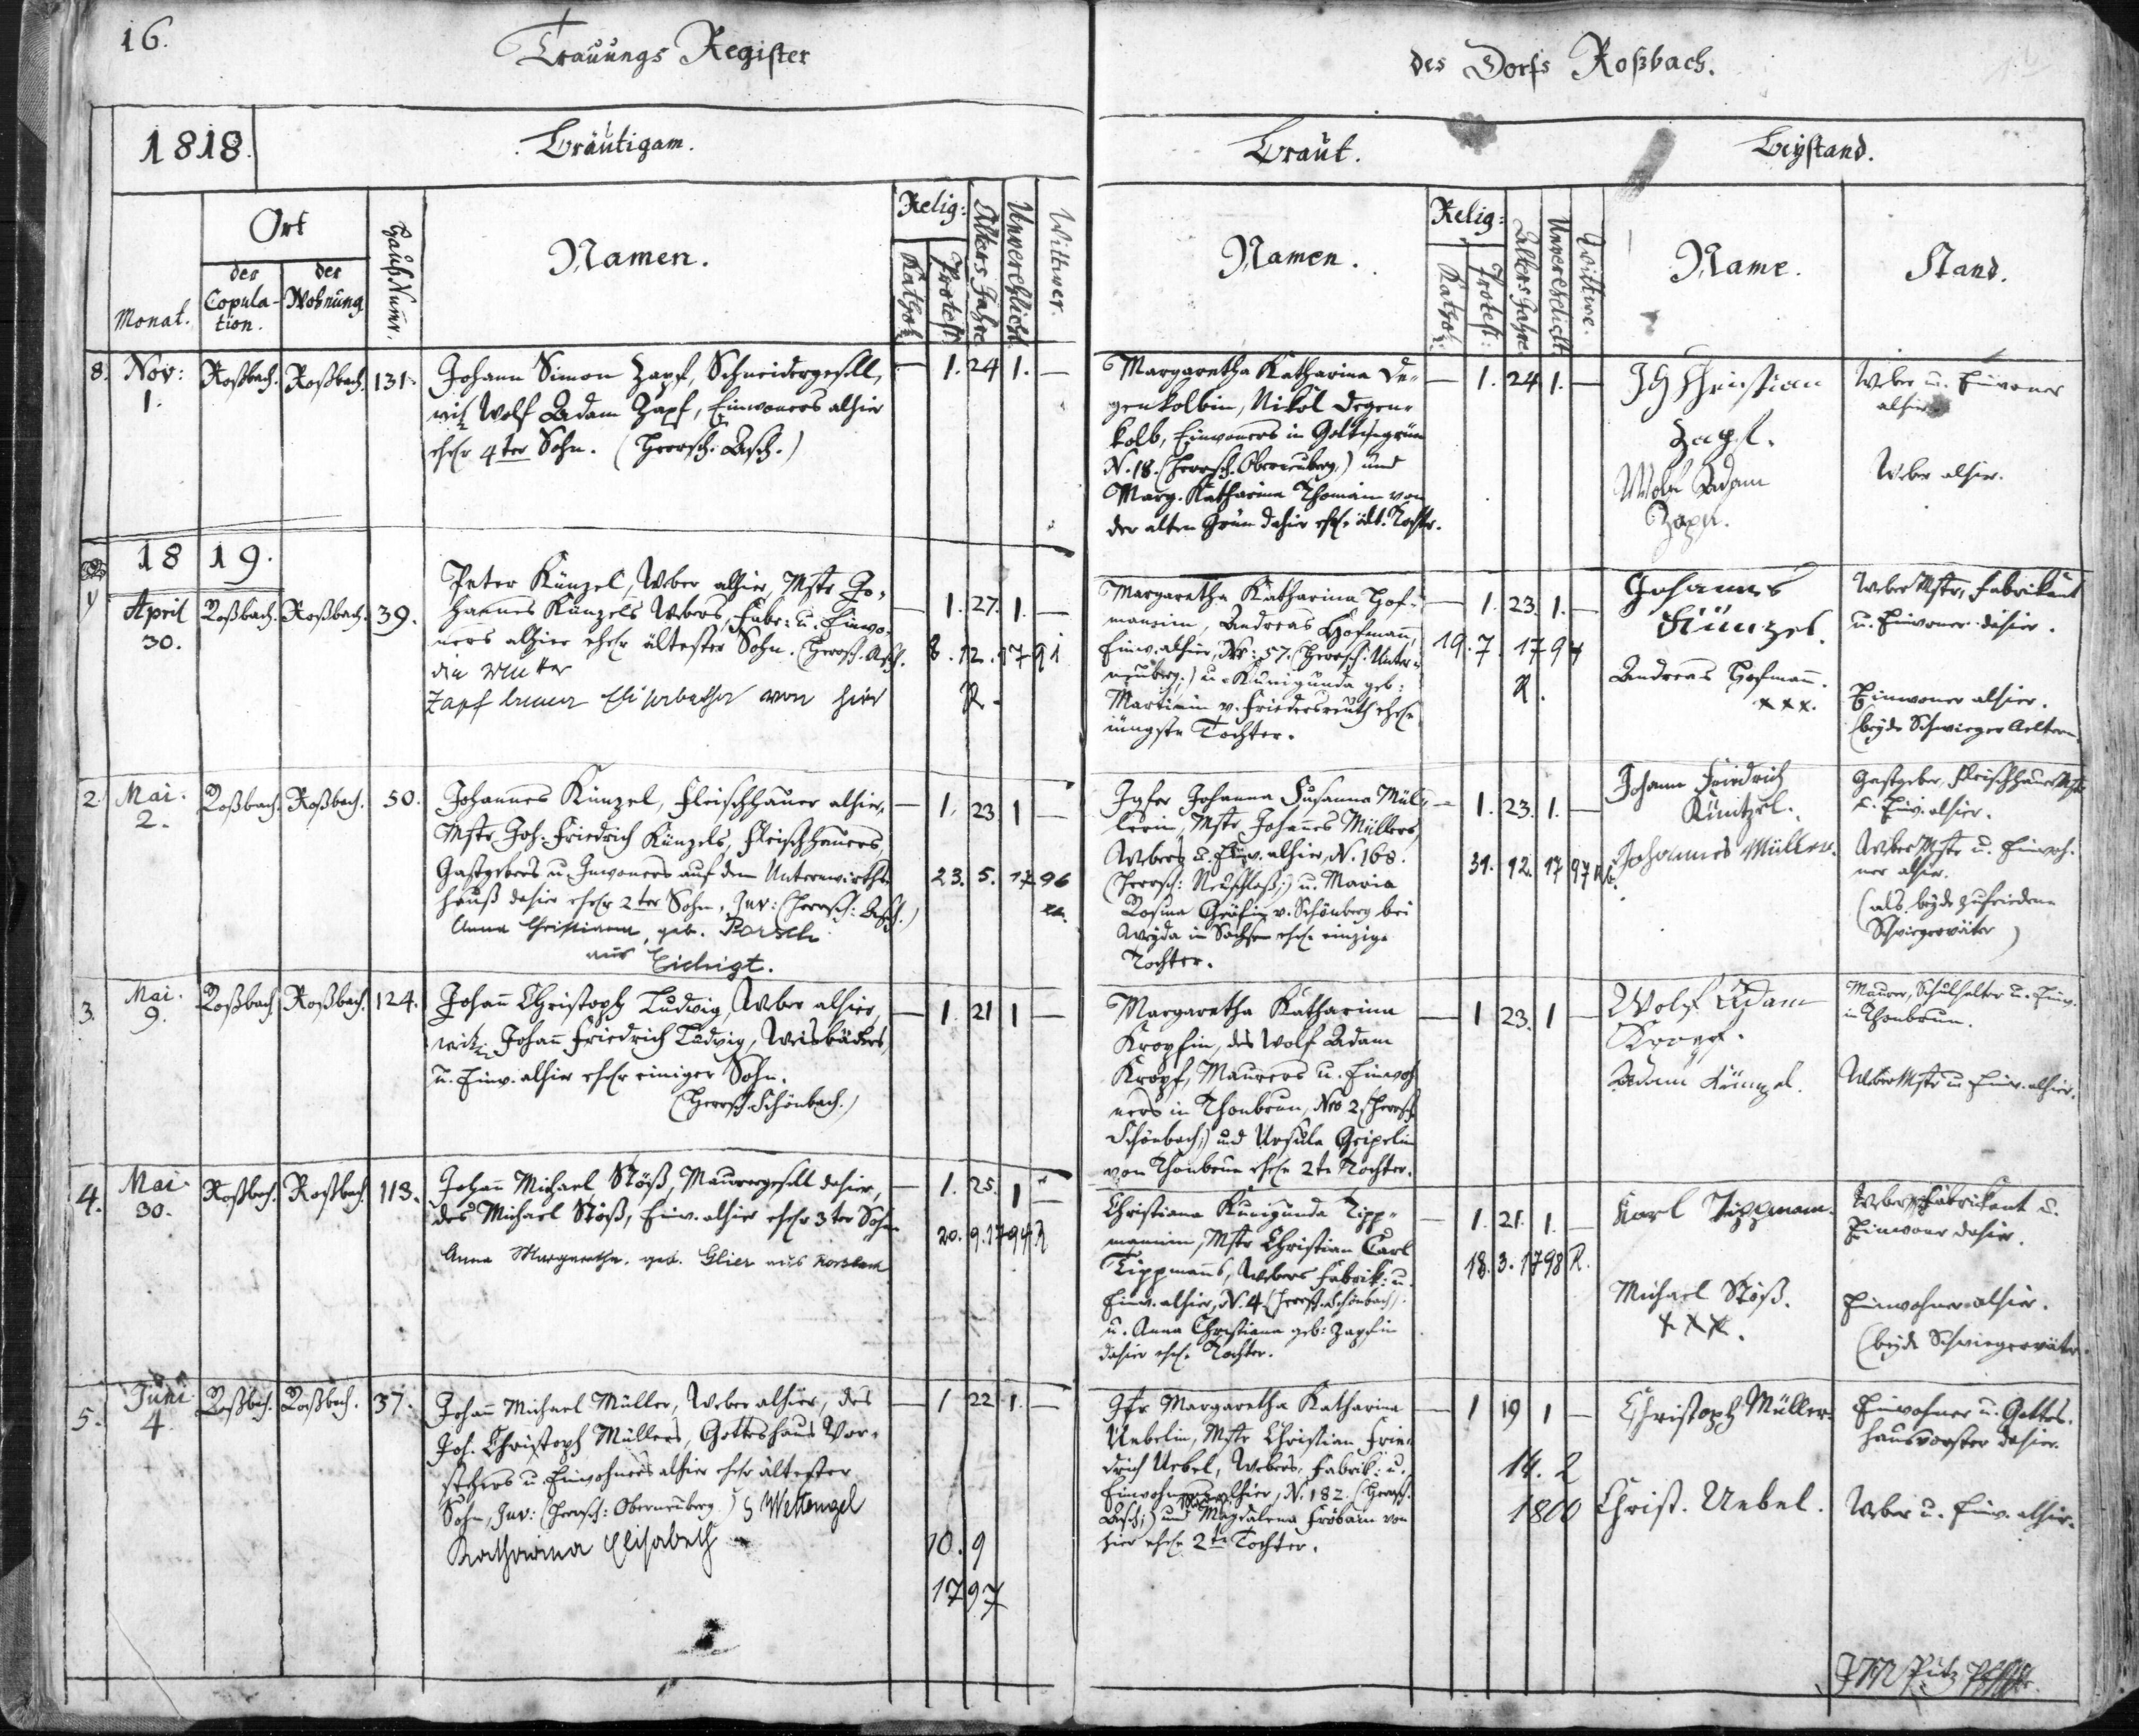 16.
Trauungs Register
des Dorfs Roßbach.
1818.
Bräutigam.
Braut.
Beystand.
Monat.
Ort
des Copula-
tion.
der
Wohnung
Hauß Numr.
Namen.
Relig:
Kathol:
Protest:
Alters Jahre
Unverehlicht
Wittwer.
Namen.
Relig:
Kathol:
Protest:
Alters Jahre
Unverehelicht
Wittwe.
Name.
Stand.
8. Nov: 1. Roßbach. Roßbach. 131.
Johann Simon Zapf, Schneidergesell,
Wolf Adam Zapf, Einwoners alhier
ehel. 4ter Sohn. (Herrsch: Asch.)
— 1. 24 1. —
Margaretha Katharina De-
genkolbin, Nikol Degen-
kolb, Einwoners in Gottmannsgrün
N. 18. (Herrsch. Oberneuberg,) und
Marg. Katharina Thomäin von
der alten Grün dahier ehel. ält. Tochter.
— 1. 24 1. —
Joh Christian
Zapf.
Wolf Adam
Zapf.
Weber u. Einwoner
alhier
Weber alhier.
1819.
1) April 30. Roßbach. Roßbach. 39.
Peter Künzel, Weber alhier, Mstr Jo-
hannes Künzels Webers, Fabr: u. Einwo-
ners alhier ehel. ältester Sohn. (Herrsch. Asch.
die Mutter
Zapf Elisabetha von hier
— 1. 27. 1. —
8. 12. 1791
R.
Margaretha Katharina Hof-
mannin, Andreas Hofmann,
Einw. alhier, Nr: 57. (Herrsch: Unter-
neuberg:) u. Kunigunda geb:
Martinin v. Friedersreuth ehel.
jüngste Tochter.
— 1. 23. 1. —
19. 7. 1794
R.
Johannes
Künzel.
Andreas Hofmann.
xxx.
Weber Mstr, Fabrikant
u. Einwoner dahier.
Einwoner alhier.
(beyde Schwieger Aeltern.
2. Mai. 2. Roßbach. Roßbach. 50.
Johannes Künzel, Fleischhauer alhier,
Mstr Joh. Friedrich Künzels, Fleischhauers,
Gastgebers u. Inwoners auf dem Unterwirths
hauß dahier ehel. 2ter Sohn, Juv: (Herrsch: Asch.)
Anna Christiana, geb. Porsch
aus Eichigt.
— 1. 23. 1 —
23. 5. 1796
Jgfer Johanna Susanna Mül-
lerin, Mstr Johannes Müllers,
Webers u. Einw. alhier, N. 168.
(Herrsch: Neuschloß;) u. Maria
Rosina v. Schönberg bei
Weyda in Sachsen ehel. einzige
Tochter.
— 1. 23. 1. —
31. 12. 1797 R.
Johann Friedrich
Künzel.
Johannes Müller.
Gastgeber, Fleischhauer Mstr
u. Einw. alhier.
Weber Mstr u. Einwoh-
ner alhier.
(als beyde zufriedene
Schwiegerväter)
3. Mai. 9. Roßbach. Roßbach. 124.
Johann Christoph Ludwig, Weber alhier,
Johann Friedrich Ludwig, Weisbäckers,
u. Einw. alhier ehel. einiger Sohn.
(Herrsch. Schönbach.)
— 1. 21 1 —
Margaretha Katharina
Kropfin, des Wolf Adam
Kropf, Maurers u. Einwoh
ners in Thonbrun, Nro 2, (Herrsch.
Schönbach;) und Ursula Geipelin
von Thonbrun ehel. 2te Tochter.
— 1 23. 1 —
Wolf Adam
Kropf.
Adam Künzel.
Maurer, Schulhalter u. Einw.
in Thonbrun.
Weber Mstr u Einw. alhier.
4. Mai. 30. Roßbach. Roßbach 113.
Johann Michael Stöß, Maurergesell dahier,
des Michael Stöß, Einw. alhier ehel. 3ter Sohn
Anna Margaretha. geb. Glier aus
— 1. 25. 1 —
20. 9. 1794 R
Christiana Kunigunda Tipp-
mannin, Mstr Christian Carl
Tippmanns, Webers Fabrik: u.
Einw. alhier, N. 4. (Herrsch. Schönbach)
u. Anna Christiana geb: Zapfin
dahier ehel. Tochter.
— 1. 21. 1. —
18. 3. 1798 R.
Karl Tippmann.
Michael Stöß.
xxx.
Weber Fabrikant u.
Einwoner dahier.
Einwohner alhier.
(beyde Schwiegerväter.
5. Juni 4. Roßbach. Roßbach. 37.
Johann Michael Müller, Weber alhier, des
Joh. Christoph Müllers, Gotteshaus Vor-
stehers u Einwohners alhier ehel. ältester
Sohn, Juv: (Herrsch: Oberneuberg.) Wettengel
Katharina Elisabeth
— 1 22. 1. —
10. 9
1797
Jfr Margaretha Katharina
Uebelin, Mstr Christian Frie-
drich Uebel, Webers, Fabrik: u.
Einwohners alhier, N. 182. (Herrsch.
Asch;) und Magdalena von
hier ehel. 2te Tochter.
— 1 19 1 —
14. 2
1800
Christoph Müller.
Christ. Uebel.
Einwohner u. Gottes-
hausvorsteher dahier.
Weber u. Einw. alhier.